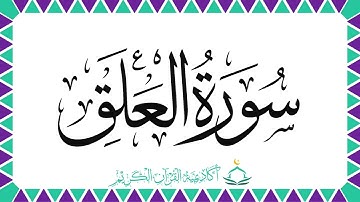 سُورَةُ الْعَلَقِ
أكاديمية القرآن الكريم